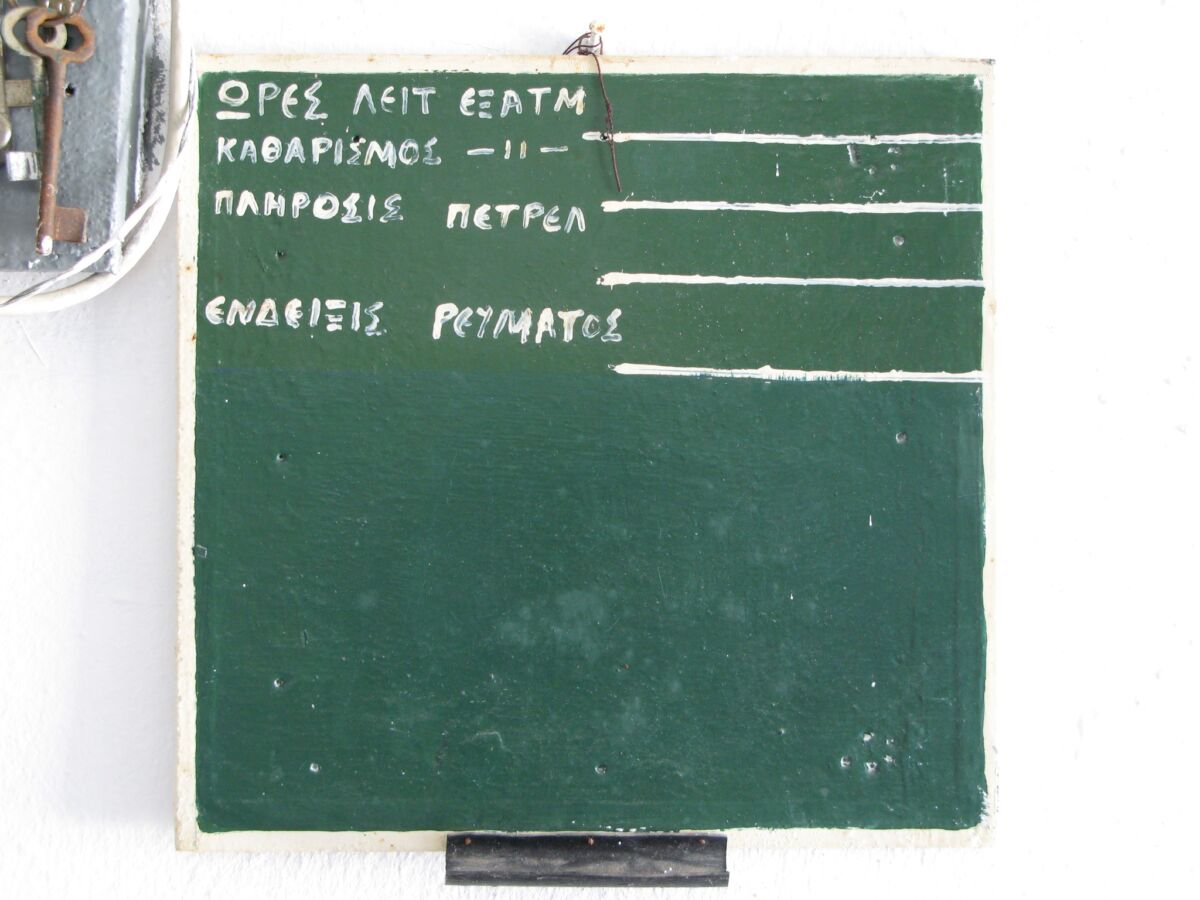 ΩΡΕΣ ΛΕΙΤ ΕΞΑΤΜ
ΚΑΘΑΡΙΣΜΟΣ —〃—
ΠΛΗΡΟΣΙΣ ΠΕΤΡΕΛ
ΕΝΔΕΙΞΙΣ ΡΕΥΜΑΤΟΣ